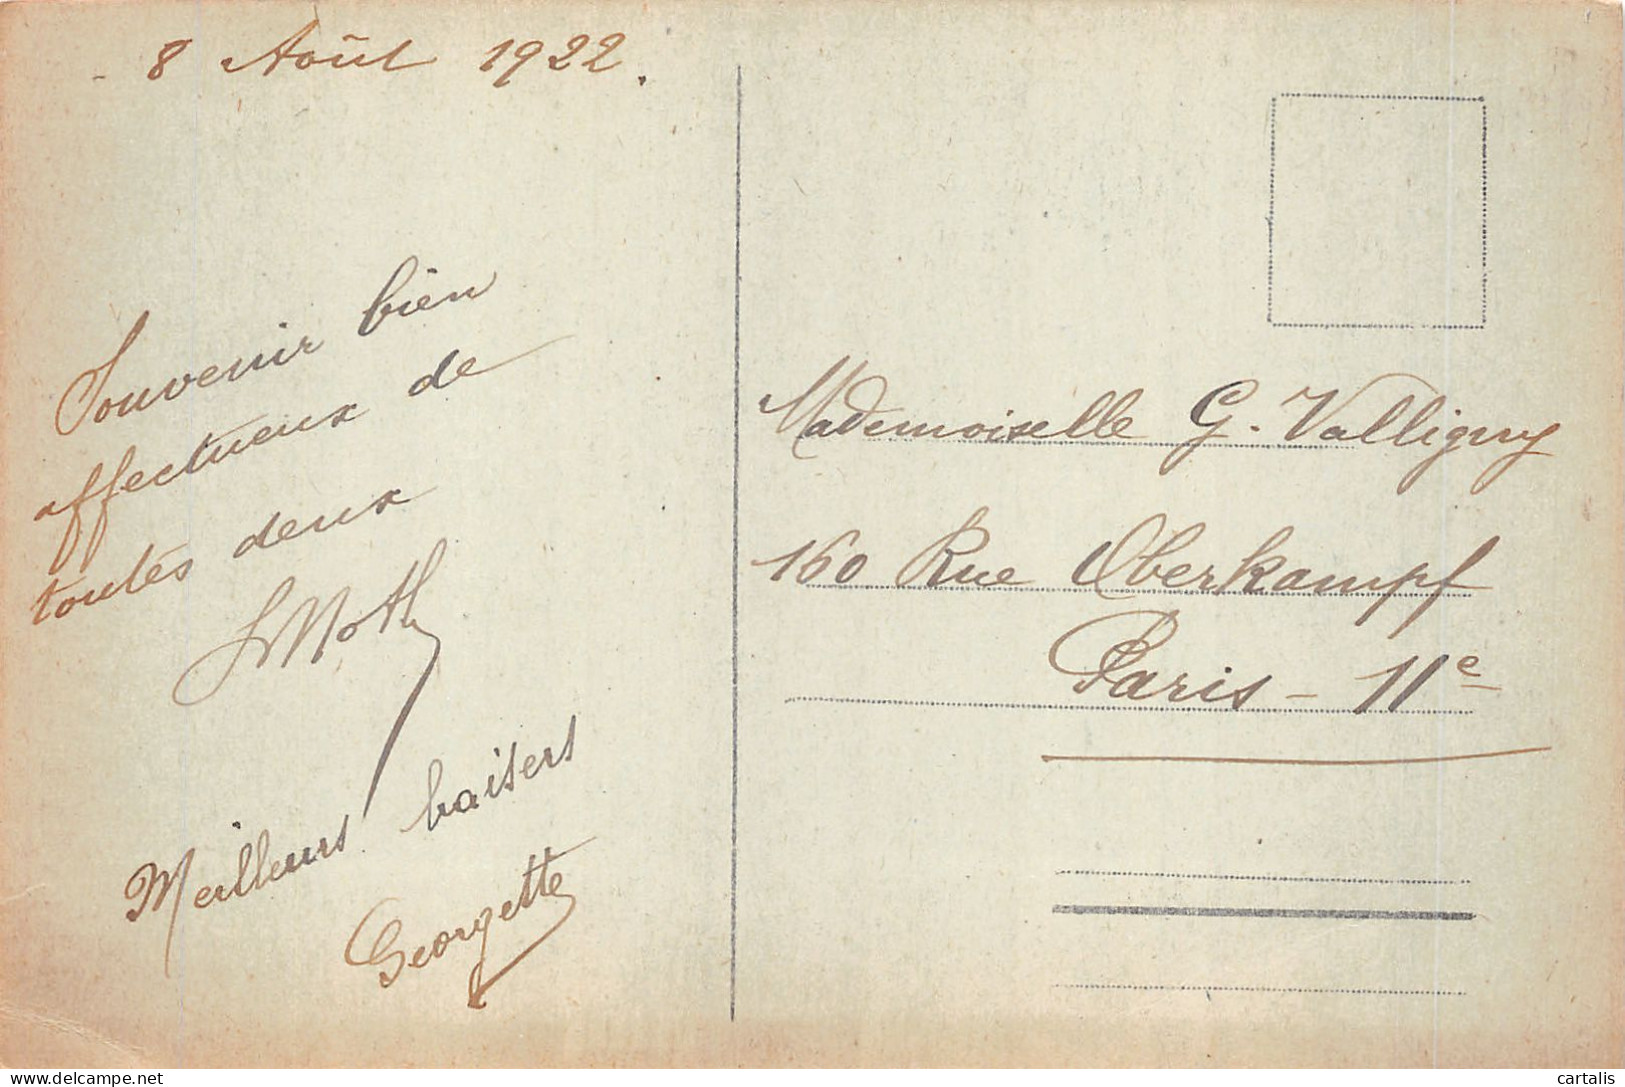 8 Août 1922.
Souvenir bien
affectueux de
toutes deux
Meilleurs baisers
Georgette
Mademoiselle G. Valligny
160 Rue Oberkampf
Paris - 11e
www.delcampe.net
cartalis